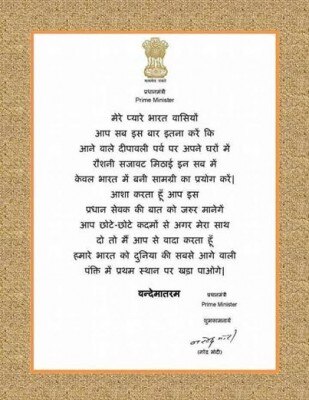 प्रधानमंत्री
Prime Minister
मेरे प्यारे भारत वासियों
आप सब इस बार इतना करें कि
आने वाले दीपावली पर्व पर अपने घरों में
रौशनी सजावट मिठाई इन सब में
केवल भारत में बनी सामग्री का प्रयोग करें|
आशा करता हूँ आप इस
प्रधान सेवक की बात को जरूर मानेगें
आप छोटे-छोटे कदमों से अगर मेरा साथ
दो तो मैं आप से वादा करता हूँ
हमारे भारत को दुनिया की सबसे आगे वाली
पंक्ति में प्रथम स्थान पर खड़ा पाओगे|
वन्देमातरम
प्रधानमंत्री
Prime Minister
शुभकामनायें
(नरेंद्र मोदी)